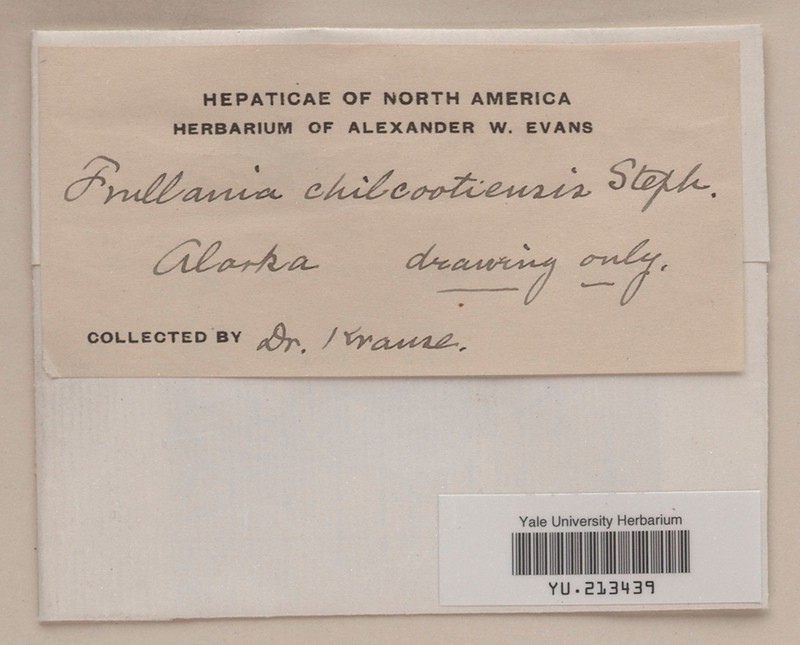 HEPATICAE OF NORTH AMERICA
HERBARIUM OF ALEXANDER W. EVANS
Frullania chilcootiensis Steph.
Alaska drawing only.
COLLECTED BY Dr. Krause.
Yale University Herbarium
YU.213439